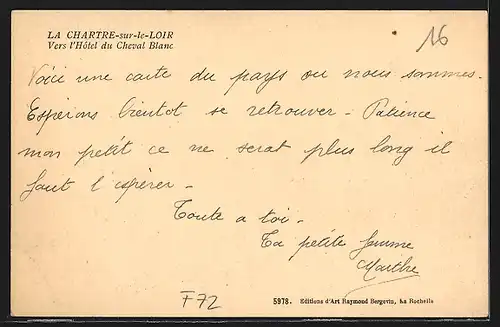 LA CHARTRE-sur-le-LOIR
Vers l'Hôtel du Cheval Blanc
16
Voici une carte du pays ou nous sommes.
Espérons bientot se retrouver - Patience
mon petit ce ne serat plus long il
faut l'espérer -
Toute a toi -
Ta petite femme
Marthe
F72
5978. Editions d'Art Raymond Bergevin, La Rochelle